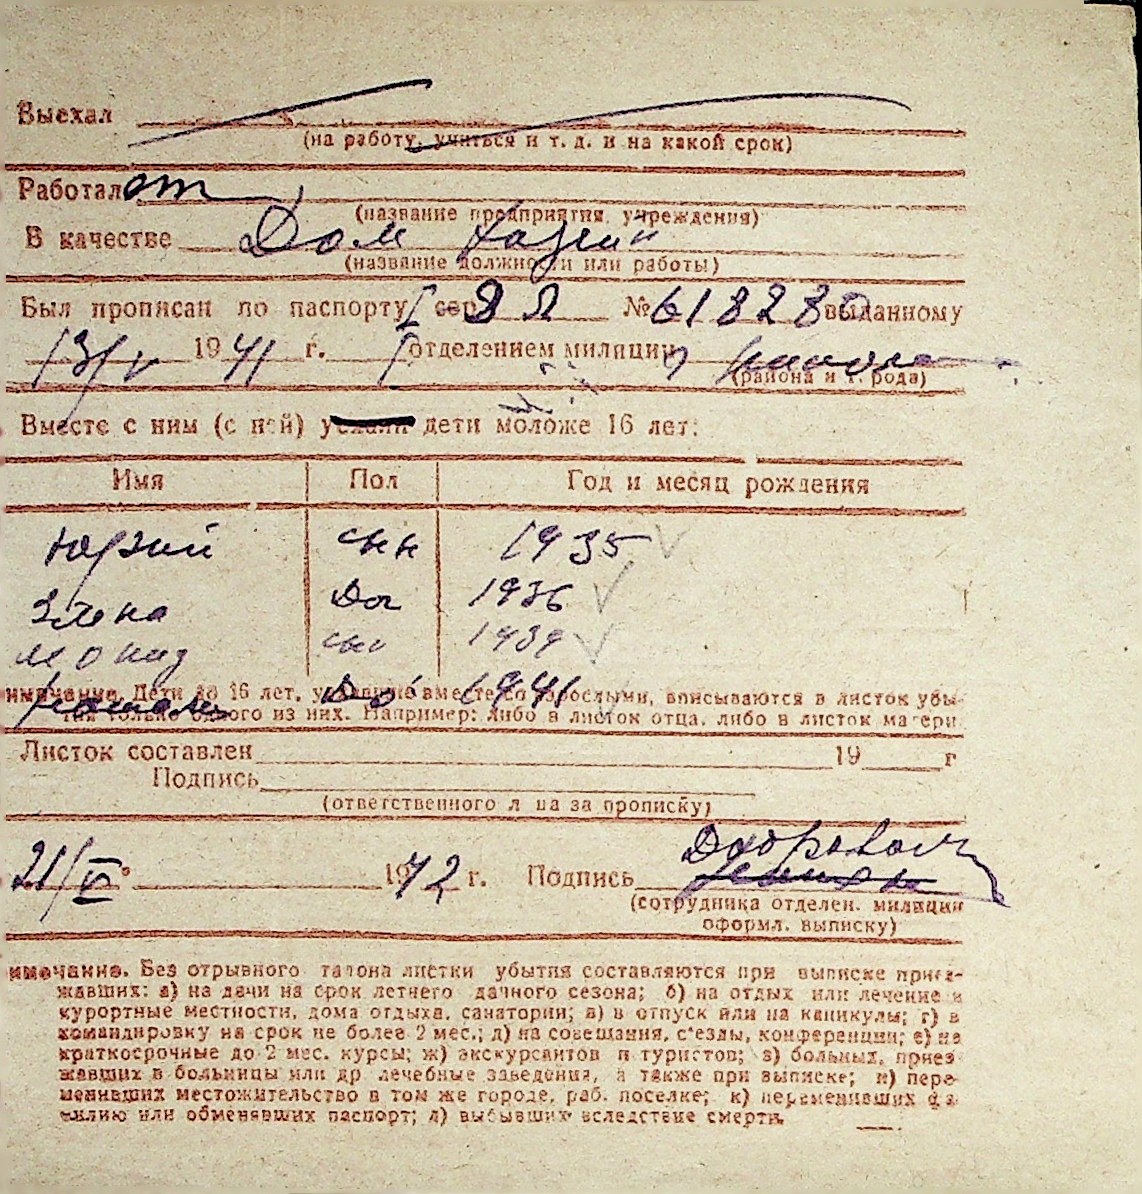 Выехал
(на работу, учиться и т. д. и на какой срок)
Работал
(название предприятия, учреждения)
В качестве Дом хазяин
(название должности или работы)
Был прописан по паспорту сер № 618280 выданному
13/V 1941 г. отделением милиции
(района и города)
Вместе с ним (с ней) дети моложе 16 лет:
Имя Пол Год и месяц рождения
Юрзий сын 1935
Элена Доч 1936
сын 1939
До 1941
имечание. Дети до 16 лет, убывшие вместе со взрослыми, вписываются в листок убы-
тия только одного из них. Например: либо в листок отца, либо в листок матери.
Листок составлен 19 г
Подпись
(ответственного лица за прописку)
21/V 1942 г. Подпись
(сотрудника отделен. милиции
оформл. выписку)
имечание. Без отрывного талона листки убытия составляются при выписке приез-
жавших: а) на дачи на срок летнего дачного сезона; б) на отдых или лечение в
курортные местности, дома отдыха, санатории; в) в отпуск или на каникулы; г) в
командировку на срок не более 2 мес.; д) на совещания, с'езды, конференции; е) на
краткосрочные до 2 мес. курсы; ж) экскурсантов и туристов; з) больных, приез
жавших в больницы или др лечебные заведения, а также при выписке; и) пере-
менивших местожительство в том же городе, раб. поселке; к) переменивших фа-
милию или обменявших паспорт; л) выбывших вследствие смерти.